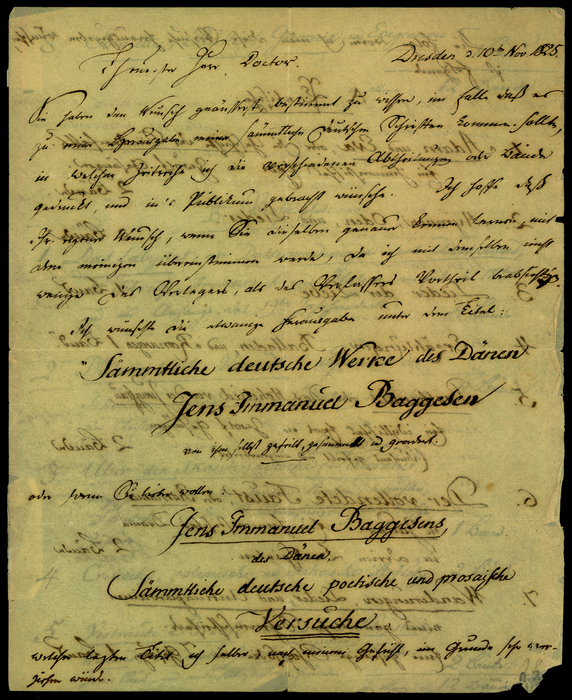 Dresden d. 10ten Nov. 1825.
Theuerster Herr Doctor.
Sie haben den Wunsch geäussert bestimmt zu wissen, im Falle daß es
zu einer Herausgabe meiner sämmtlichen deutschen Schriften kommen sollte,
in welcher ich die verschiedenen Abtheilungen oder Bände
gedruckt und in's Publikum gebracht wünsche. Ich hoffe daß
Ihr eigner Wunsch, wenn Sie dieselben genauer kennen lernen, mit
dem meinigen übereinstimmen werde, da ich mit demselben nicht
weniger des Verlegers, als des Verfassers Vortheil beabsichtige.
Ich wünschte die etwanige Herausgabe unter dem Titel:
"Sämmtliche deutsche Werke des Dänen
Jens Immanuel Baggesen
von ihm selbst gefeilt, gesammelt und geordnet.
oder wenn Sie lieber wollen:
Jens Immanuel Baggesens,
des Dänen
Sämmtliche deutsche poetische und prosaische
Versuche
welchen letzten Titel ich selber nach meinem Gefühl, im Grunde sehr vor-
ziehen würde.